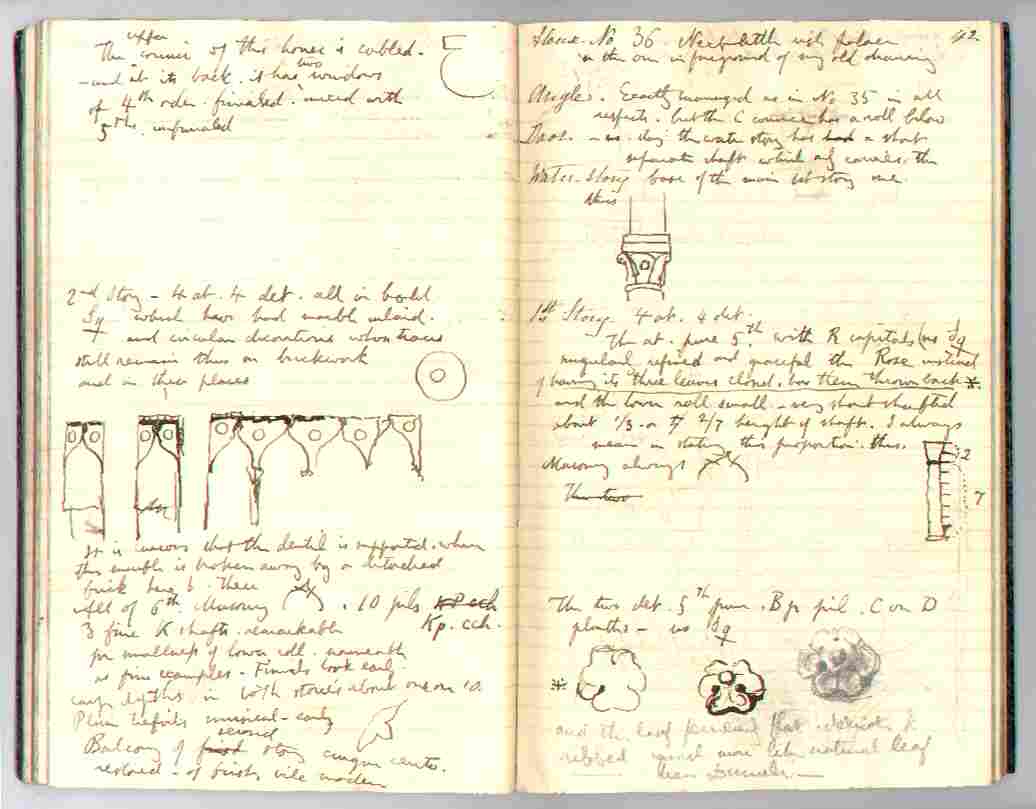 upper
The cornice of this house is cabled.
- and at its back. it has two windows
of 4th order. finialed. mixed with
5ths. unfinialed
2nd Story - 4 at. 4 det. all in bold
Sq which have had marble inlaid.
and circular decorations whose traces
still remain thus on brickwork
and in their places
It is curious that the dentil is supported. where
this marble is broken away by a detached
brick here &. there
All of 6th. Masonry . 10 jbls K.P. cch
3 fine K shafts. remarkable Kp. cch.
for smallness of lower roll.
as fine examples - Finials look early.
in both stories about one in 10.
Plain - early
Balcony of first second story cinque cento.
restored - of first, vile modern
42
House. No 36. Next palace
in the one in foreground of my old drawing
Angles. Exactly managed as in No 35 in all
respects. but the C cornice has a roll below
Door. - no.ding the water story has had a short
separate shaft which only carries the
Water-Story base of the main 1st story one
thus
1st Story 4 at. 4 det.
The at. pure 5th. with R capitals (no Sq
singularly refined and graceful the Rose instead
of having its three leaves closed. has them thrown back *.
and the lower roll small - very short shafted
about 1/3 - or 2/7 height of shaft. I always
mean in stating this proportion. this.
Masonry always
2
7
The two
The two det. 5th pure. B p pil. C on D
plinths - no Sq
*
and the leaf that is
ribbed more like natural leaf
than